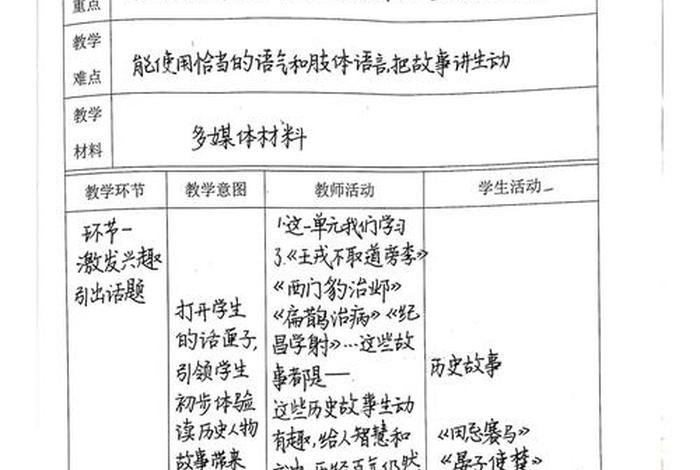 重点
教学
难点
能使用恰当的语气和肢体语言,把故事讲生动
教学
材料
多媒体材料
教学环节 教学意图 教师活动 学生活动
环节一
激发兴趣
引出话题
打开学生
的话匣子,
引领学生
初步体验
读历史人物
故事带来
1.这一单元我们学习
了《王戎不取道旁李》
《西门豹治邺》
《扁鹊治病》《纪
昌学射》…这些故
事都是——
这些历史故事生动
有趣,给人智慧和
历史故事
《田忌赛马》
《晏子使楚》